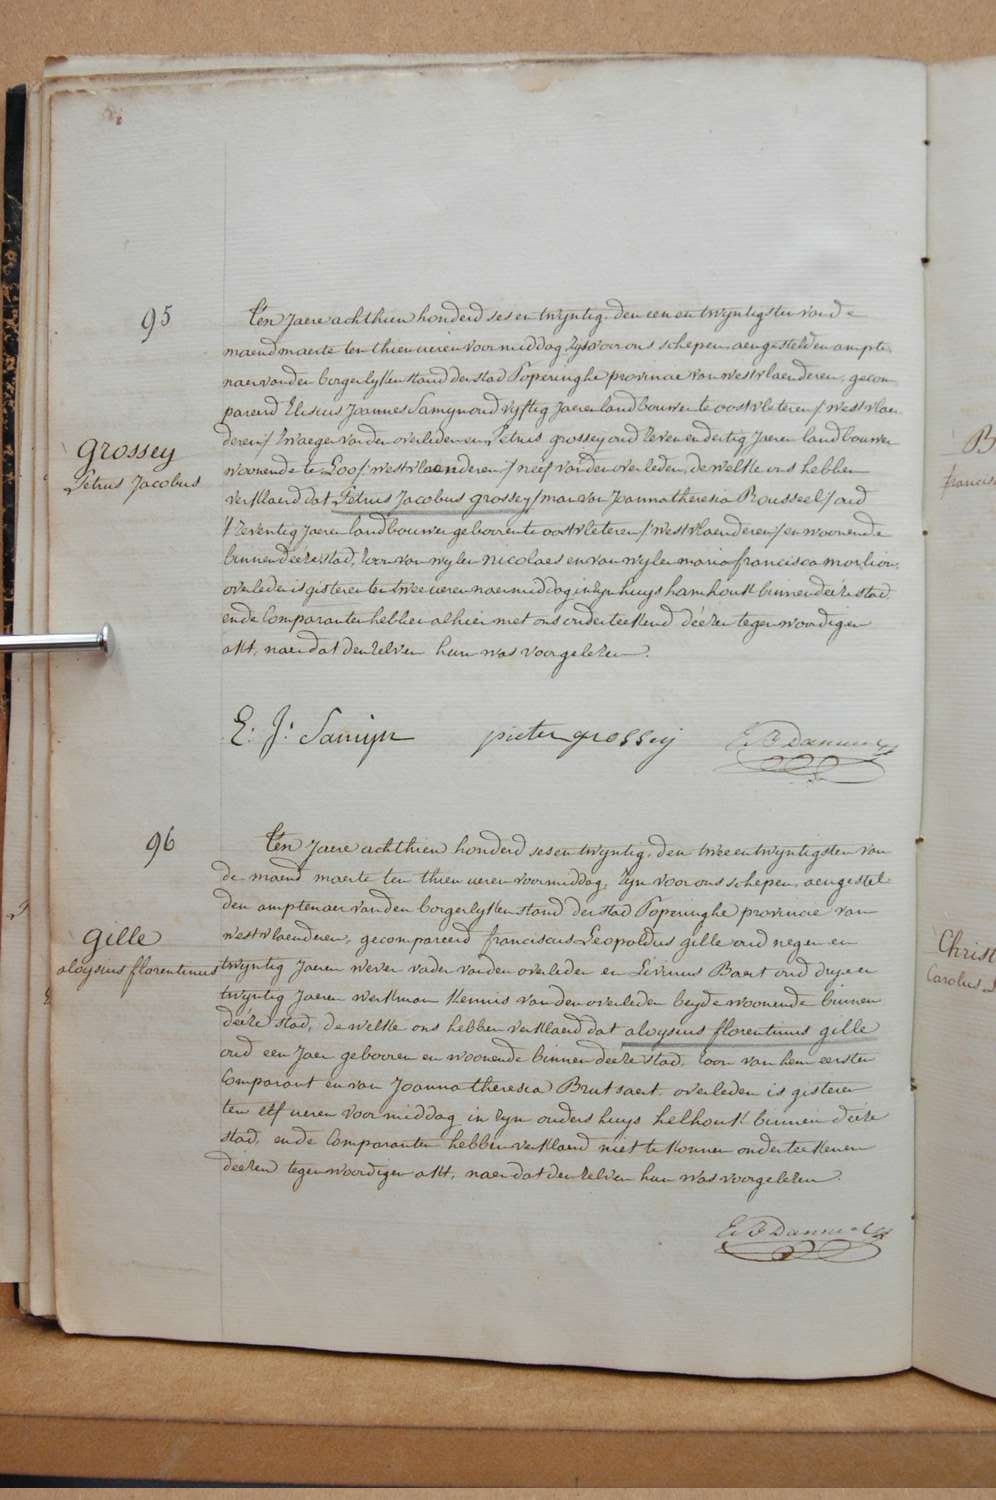 95
Grossey
Petrus Jacobus
Ten Jaere achthien honderd ses en twijntig, den een en twijntigsten van de
maend maerte ten thien ueren voormiddag, zijn voor ons schepen aengestelden ampte-
naer van den borgerlyken stand der stad Poperinghe provincie van westvlaenderen, gecom
pareerd Eliseus Joannes Samyn oud vyftig jaeren landbouwer te oostvleteren / westvlaen
deren / zwaeger van den overleden en Petrus grossey oud zeven en dertig jaeren landbouwer
woonende te Loo / westvlaenderen / neef van den overleden, de welke ons hebben
verklaerd dat Petrus Jacobus grossey / man van Joanna theresia Rousseel / oud
zeventig jaeren landbouwer gebooren te oostvleteren / westvlaenderen / en woonende
binnen deéze stad, zoon van wylen Nicolaes en van wylen maria francisca morlion,
overleden is gisteren ten twee ueren naermiddag in zyn huys hamhouk binnen deéze stad
en de Comparanten hebben alhier met ons onderteekend deézen tegenwoordigen
akt, naer dat den zelven hun was voorgelezen.
E: J: Samijn pieter grossey
96
Gille
aloysius florentinus
Ten Jaere achthien honderd ses en twijntig, den twee en twijntigsten van
de maend maerte ten thien ueren voormiddag, zyn voor ons schepen aengestel-
den amptenaer van den borgerlyken stand der stad Poperinghe provincie van
westvlaenderen, gecompareerd franciscus Leopoldus gille oud negen en
twijntig Jaeren wever vader van den overleden en Livinus Baert oud drye en
twijntig Jaeren werkman kennis van den overleden beyde woonende binnen
deéze stad, de welke ons hebben verklaerd dat aloysius florentinus gille
oud een Jaer gebooren en woonende binnen deeze stad, zoon van hem eersten
Comparant en van Joanna theresia Brutsaert, overleden is gisteren
ten elf ueren voormiddag in zyn ouders huys helhouk binnen deéze
stad, en de Comparanten hebben verklaerd niet te konnen onderteekenen
deézen tegenwoordigen akt, naer dat den zelven hun was voorgelezen.
B
francis
Christ
Carolus